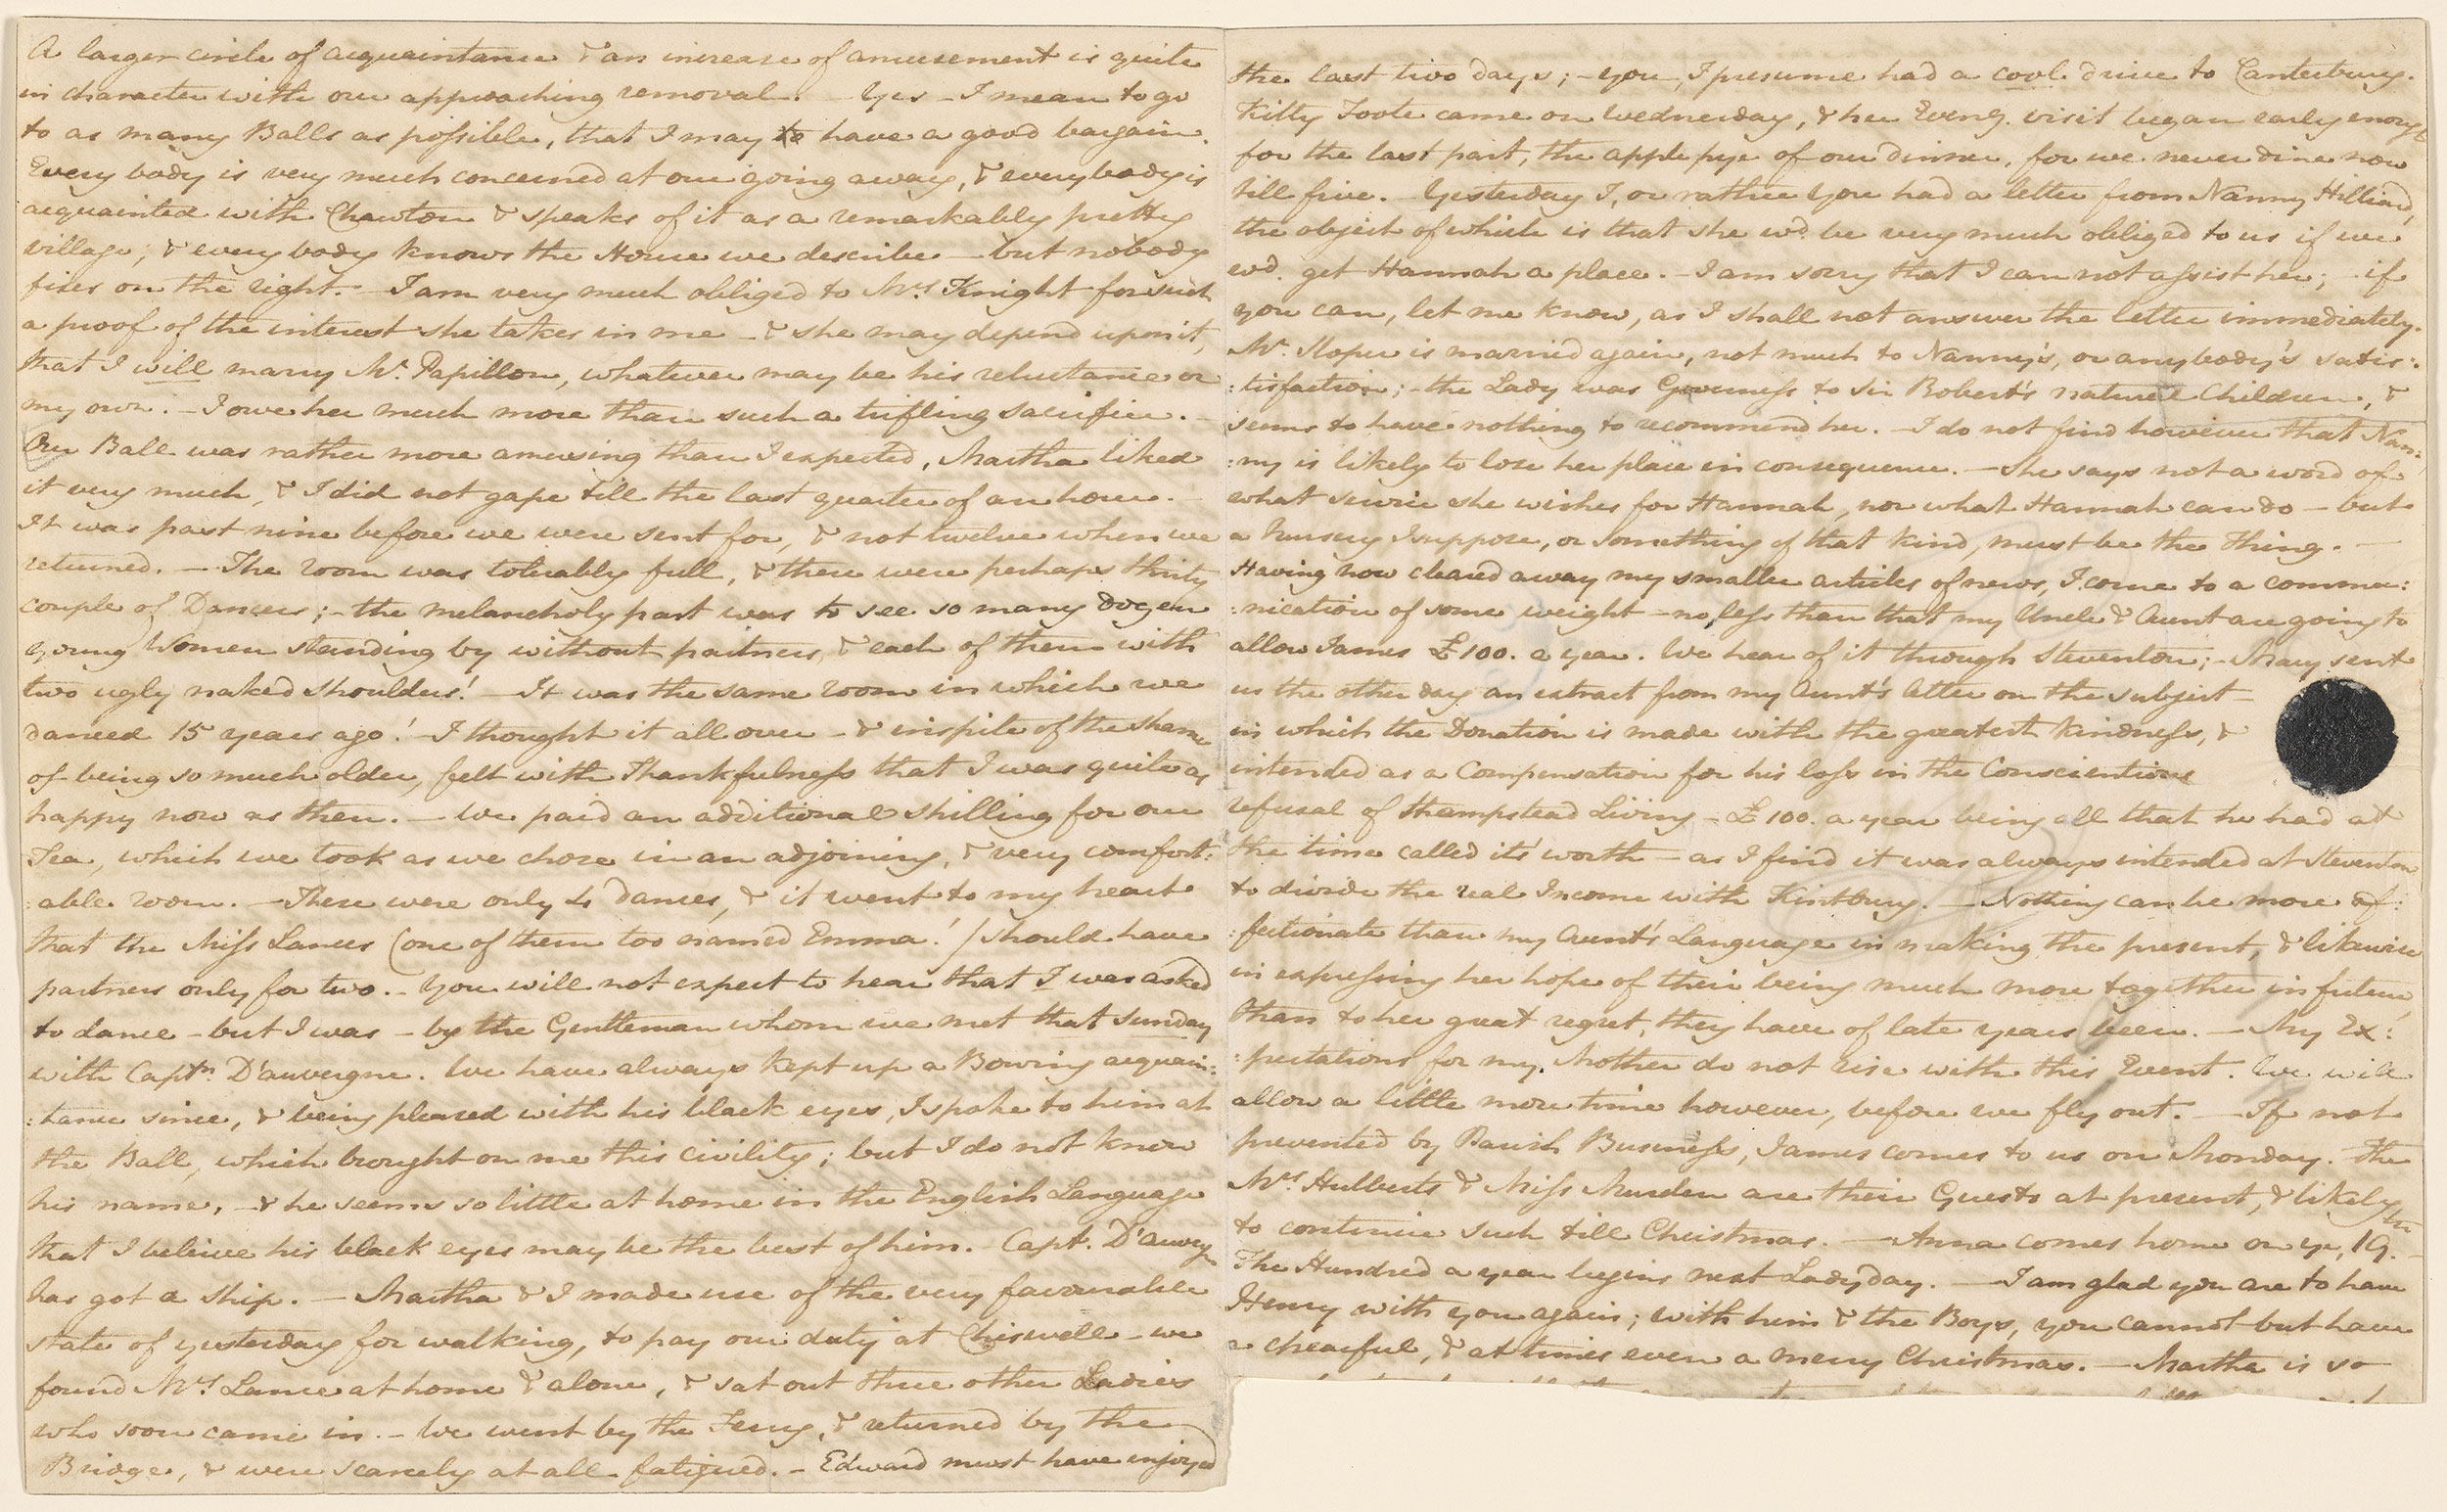 A larger circle of acquaintance & an increase of amusement is quite
in character with our approaching removal. – Yes – I mean to go
to as many Balls as possible, that I may have a good bargain.
Every body is very much concerned at our going away, & every body is
acquainted with Chawton & speaks of it as a remarkably pretty
village; & every body knows the House we describe – but nobody
fixes on the right. – I am very much obliged to Mrs. Knight for such
a proof of the interest she takes in me – & she may depend upon it,
that I will marry Mr. Papillon, whatever may be his reluctance or
my own. – I owe her much more than such a trifling sacrifice. –
Our Ball was rather more amusing than I expected, Martha liked
it very much, & I did not gape till the last quarter of an hour. –
It was past nine before we were sent for, & not twelve when we
returned. – The room was tolerably full, & there were perhaps thirty
couple of Dancers; – the melancholy part was to see so many dozen
young Women standing by without partners, & each of them with
two ugly naked shoulders! – It was the same room in which we
danced 15 years ago! – I thought it all over – & inspite of the shame
of being so much older, felt with Thankfulness that I was quite as
happy now as then. – We paid an additional shilling for our
Tea, which we took as we chose in an adjoining, & very comfort:
:able room. – There were only 4 dances, & it went to my heart
that the Miss Lances (one of them too named Emma!) should have
partners only for two. – You will not expect to hear that I was asked
to dance – but I was – by the Gentleman whom we met that Sunday
with Captn. D'auvergne. We have always kept up a Bowing acquain:
:tance since, & being pleased with his black eyes, I spoke to him at
the Ball, which brought on me this civility; but I do not know
his name, – & he seems so little at home in the English Language
that I beleive his black eyes may be the best of him. – Capt. D'auvergne
has got a Ship. – Martha & I made use of the very favourable
state of yesterday for walking, to pay our duty at Chiswell – we
found Mrs. Lance at home & alone, & sat out three other Ladies
who soon came in. – We went by the Ferry, & returned by the
Bridge, & were scarcely at all fatigued. – Edward must have enjoyed
the last two days; – you, I presume had a cool drive to Canterbury.
Kitty Foote came on Wednesday, & her Eveng. visit began early enough
for the last part, the apple pye of our dinner, for we never dine now
till five. – Yesterday I, or rather You had a letter from Nanny Hilliard,
the object of which is that she wd. be very much obliged to us if we
wd. get Hannah a place. – I am sorry that I can not assist her; – if
you can, let me know, as I shall not answer the letter immediately.
Mr. Sloper is married again, not much to Nanny's, or anybody's satis:
:tisfaction; – the Lady was Governess to Sir Robert's natural Children, &
seems to have nothing to recommend her. – I do not find however that Nan:
:ny is likely to lose her place in consequence. – She says not a word of
what service she wishes for Hannah, nor what Hannah can do – but
a Nursery I suppose, or something of that kind, must be the Thing. –
Having now cleared away my smaller articles of news, I come to a commu:
:nication of some weight – no less than that my Uncle & Aunt are going to
allow James £100. a year. We hear of it through Steventon; – Mary sent
us the other day an extract from my Aunt's letter on the subject –
in which the Donation is made with the greatest kindness, &
intended as a Compensation for his loss in the Conscientious
refusal of Hampstead Living – £100. a year being all that he had at
the time called its' worth – as I find it was always intended at Steventon
to divide the real Income with Kintbury. – Nothing can be more af:
:fectionate than my Aunt's Language in making the present, & likewise
in expressing her hope of their being much more together in future,
than to her great regret, they have of late years been. – My Ex:
:pectations for my Mother do not rise with this Event. We will
allow a little more time however, before we fly out. – If not
prevented by Parish Business, James comes to us on Monday. The
Mrs. Hulberts & Miss Murden are their Guests at present, & likely
to continue such till Christmas. – Anna comes home on ye. 19th. –
The Hundred a year begins next Ladyday. – I am glad you are to have
Henry with you again; with him & the Boys, you cannot but have
a chearful, & at times even a merry Christmas. – Martha is so